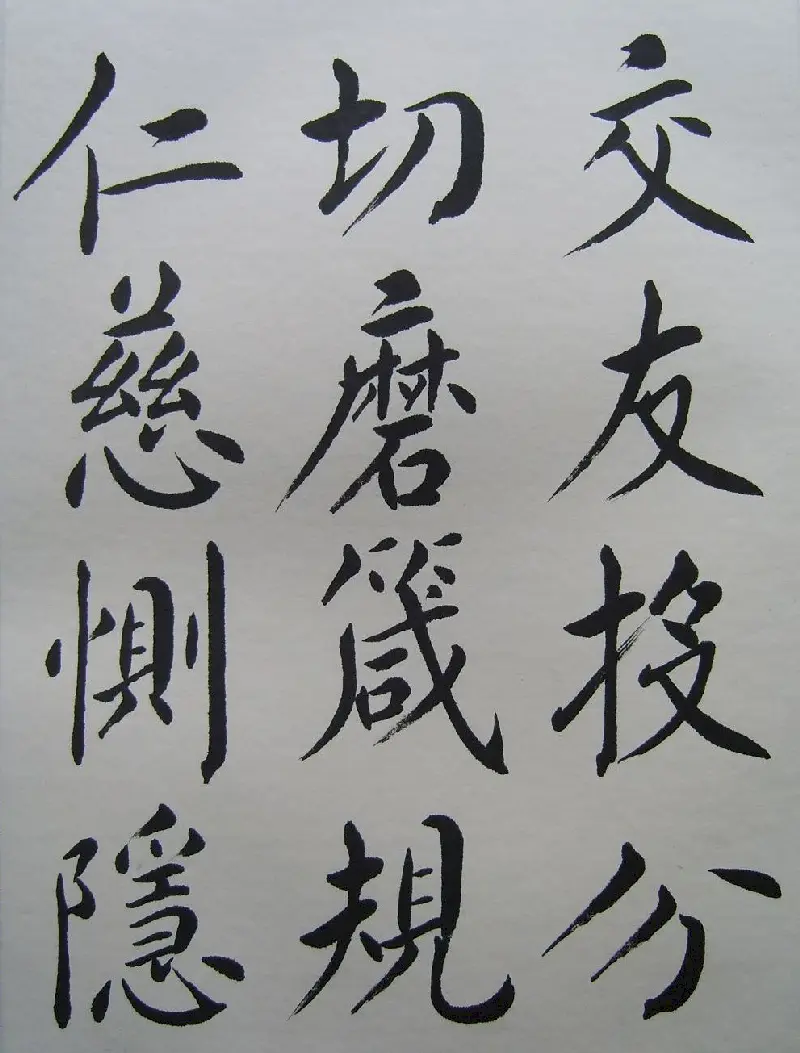 交友投分
切磨箴規
仁慈惻隱